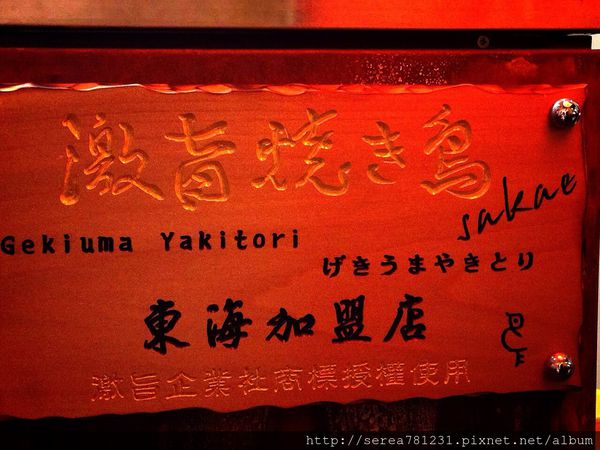 激旨焼き鳥
sakae
Gekiuma Yakitori
げきうまやきとり
東海加盟店
激旨企業社商標授權使用
http://serea781231.pixnet.net/album